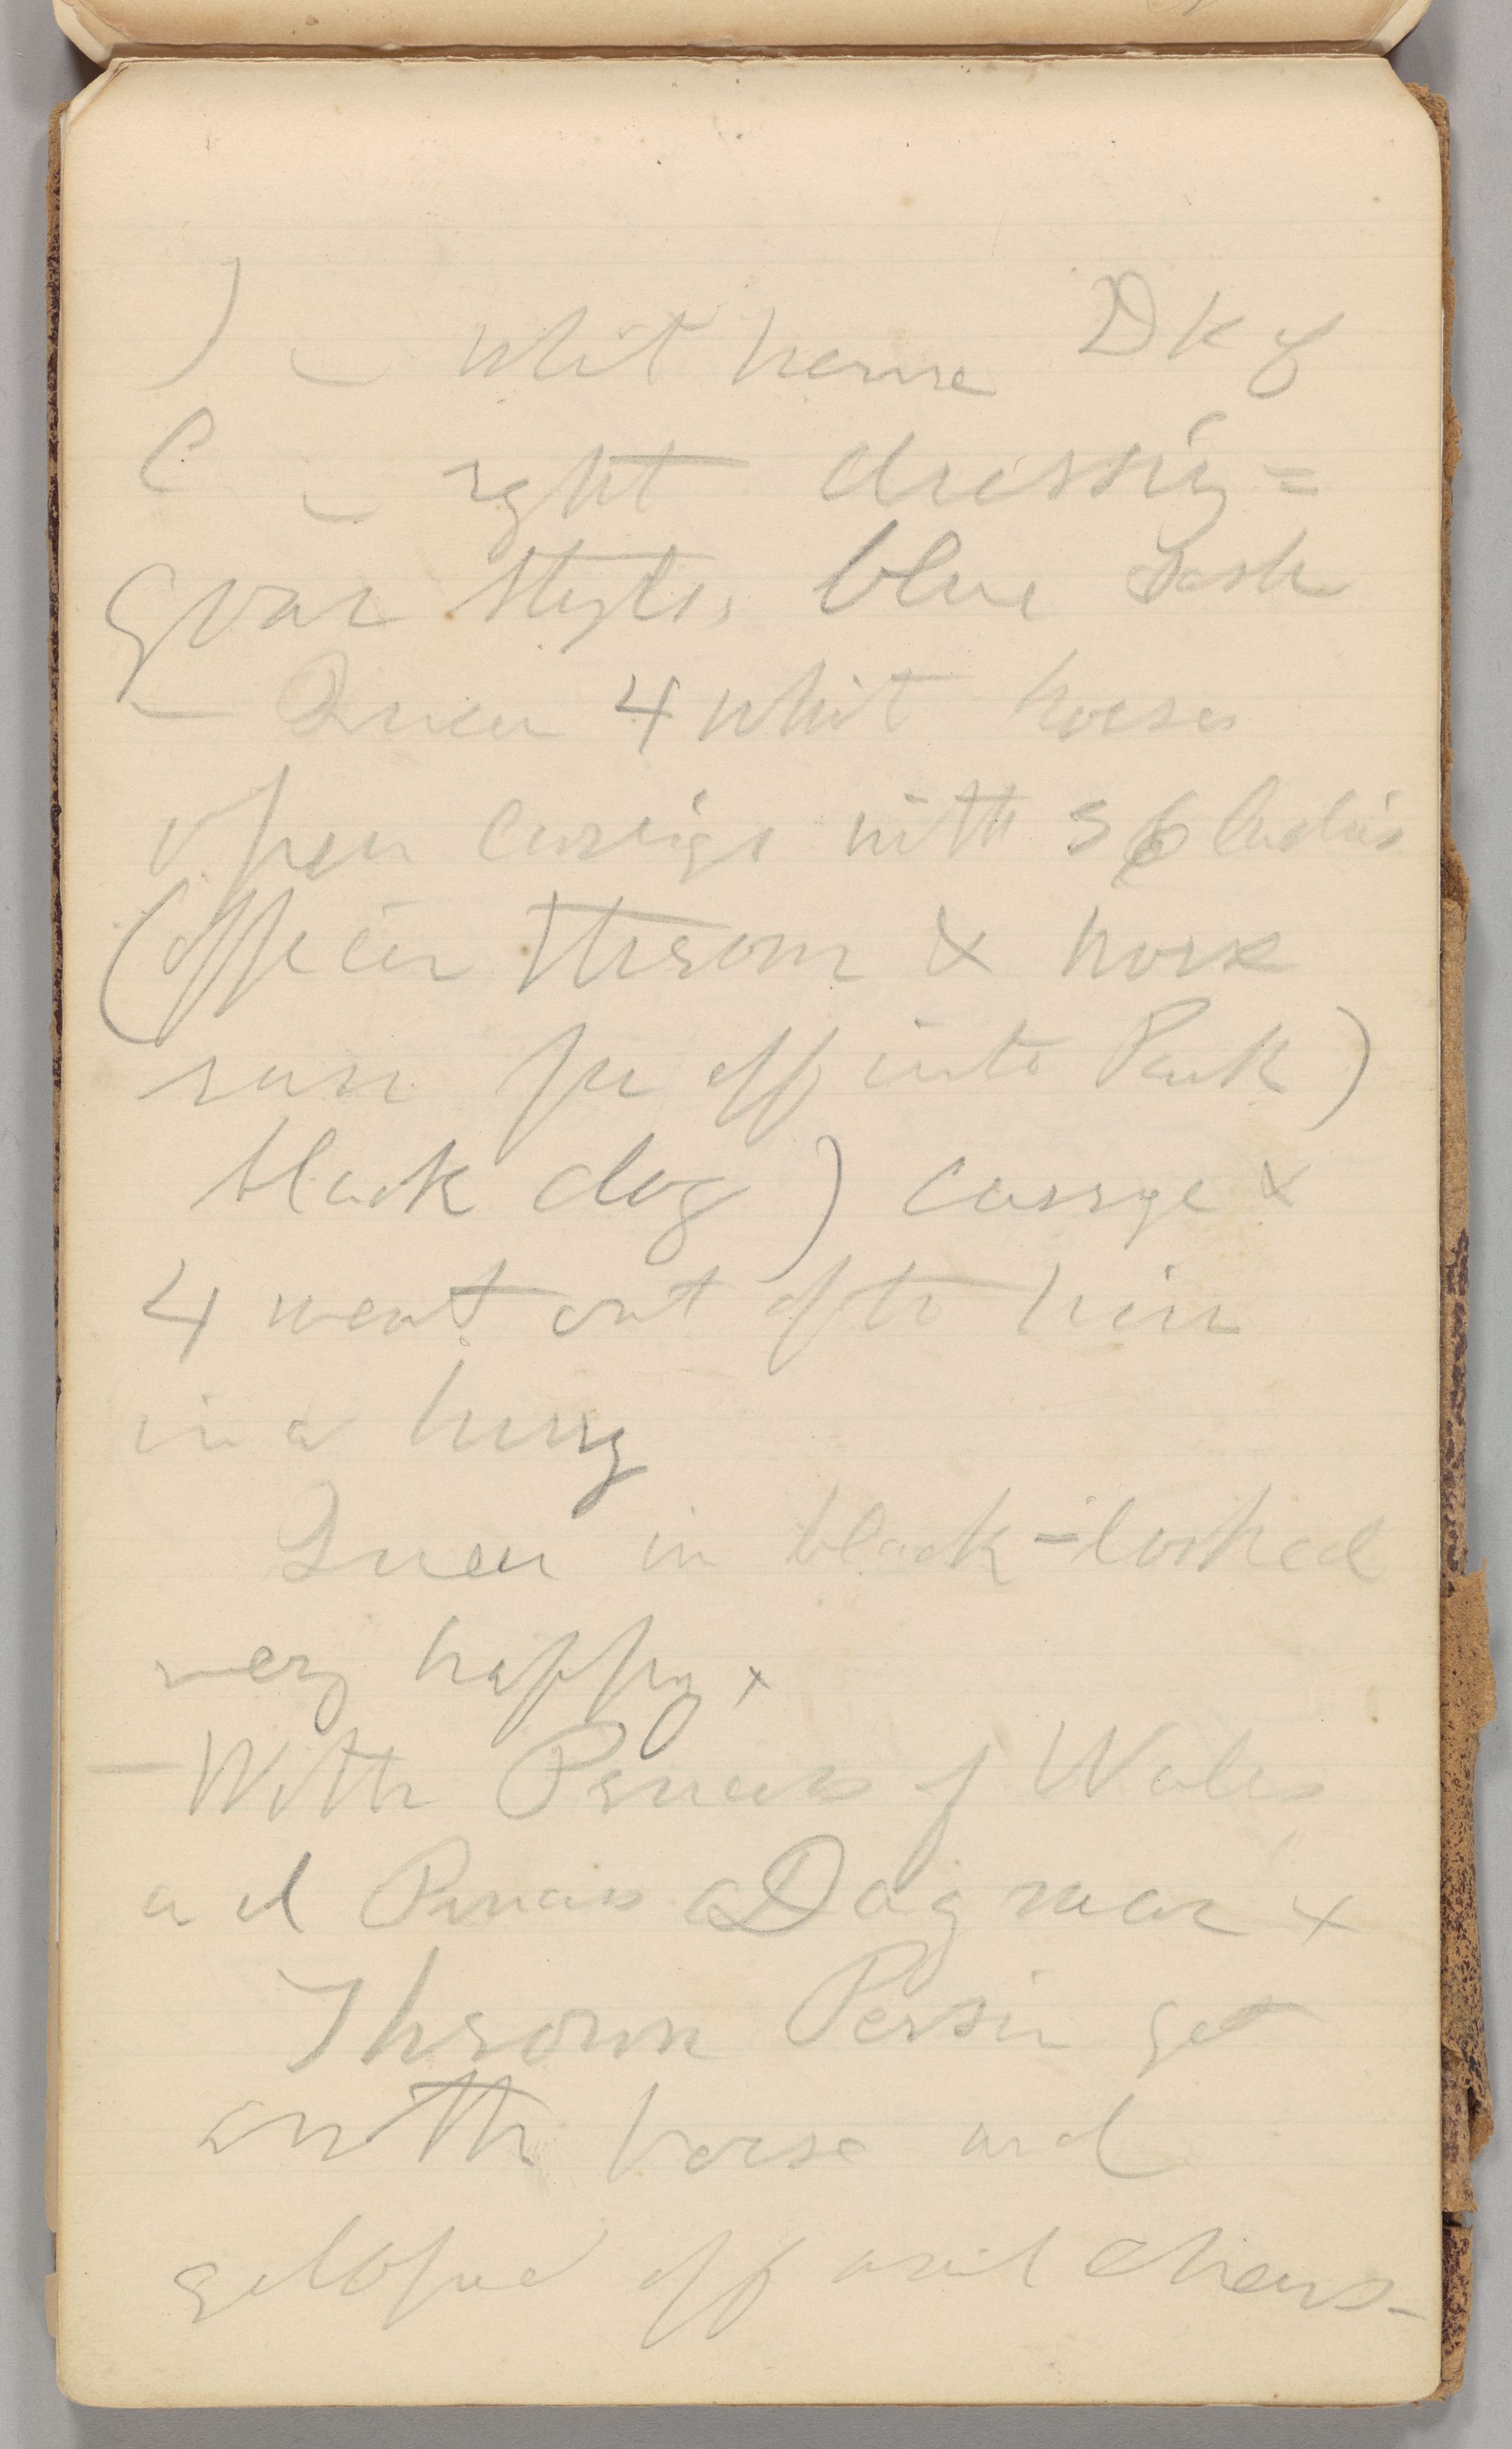 ) — whit horse Dk of
C — right dressing =
gown style, blue Sash
— Queen 4 whit horses
open carrige with 3 6 Indias
(officer thrown & horse
runn far off into Park)
black dog) carrge &
4 went out after him
in a hurry
Queen in black - looked
very happy x
— With Princess of Wales
and Princess Dagmar x
Thrown Person got
another horse and
galoped off amid cheers -